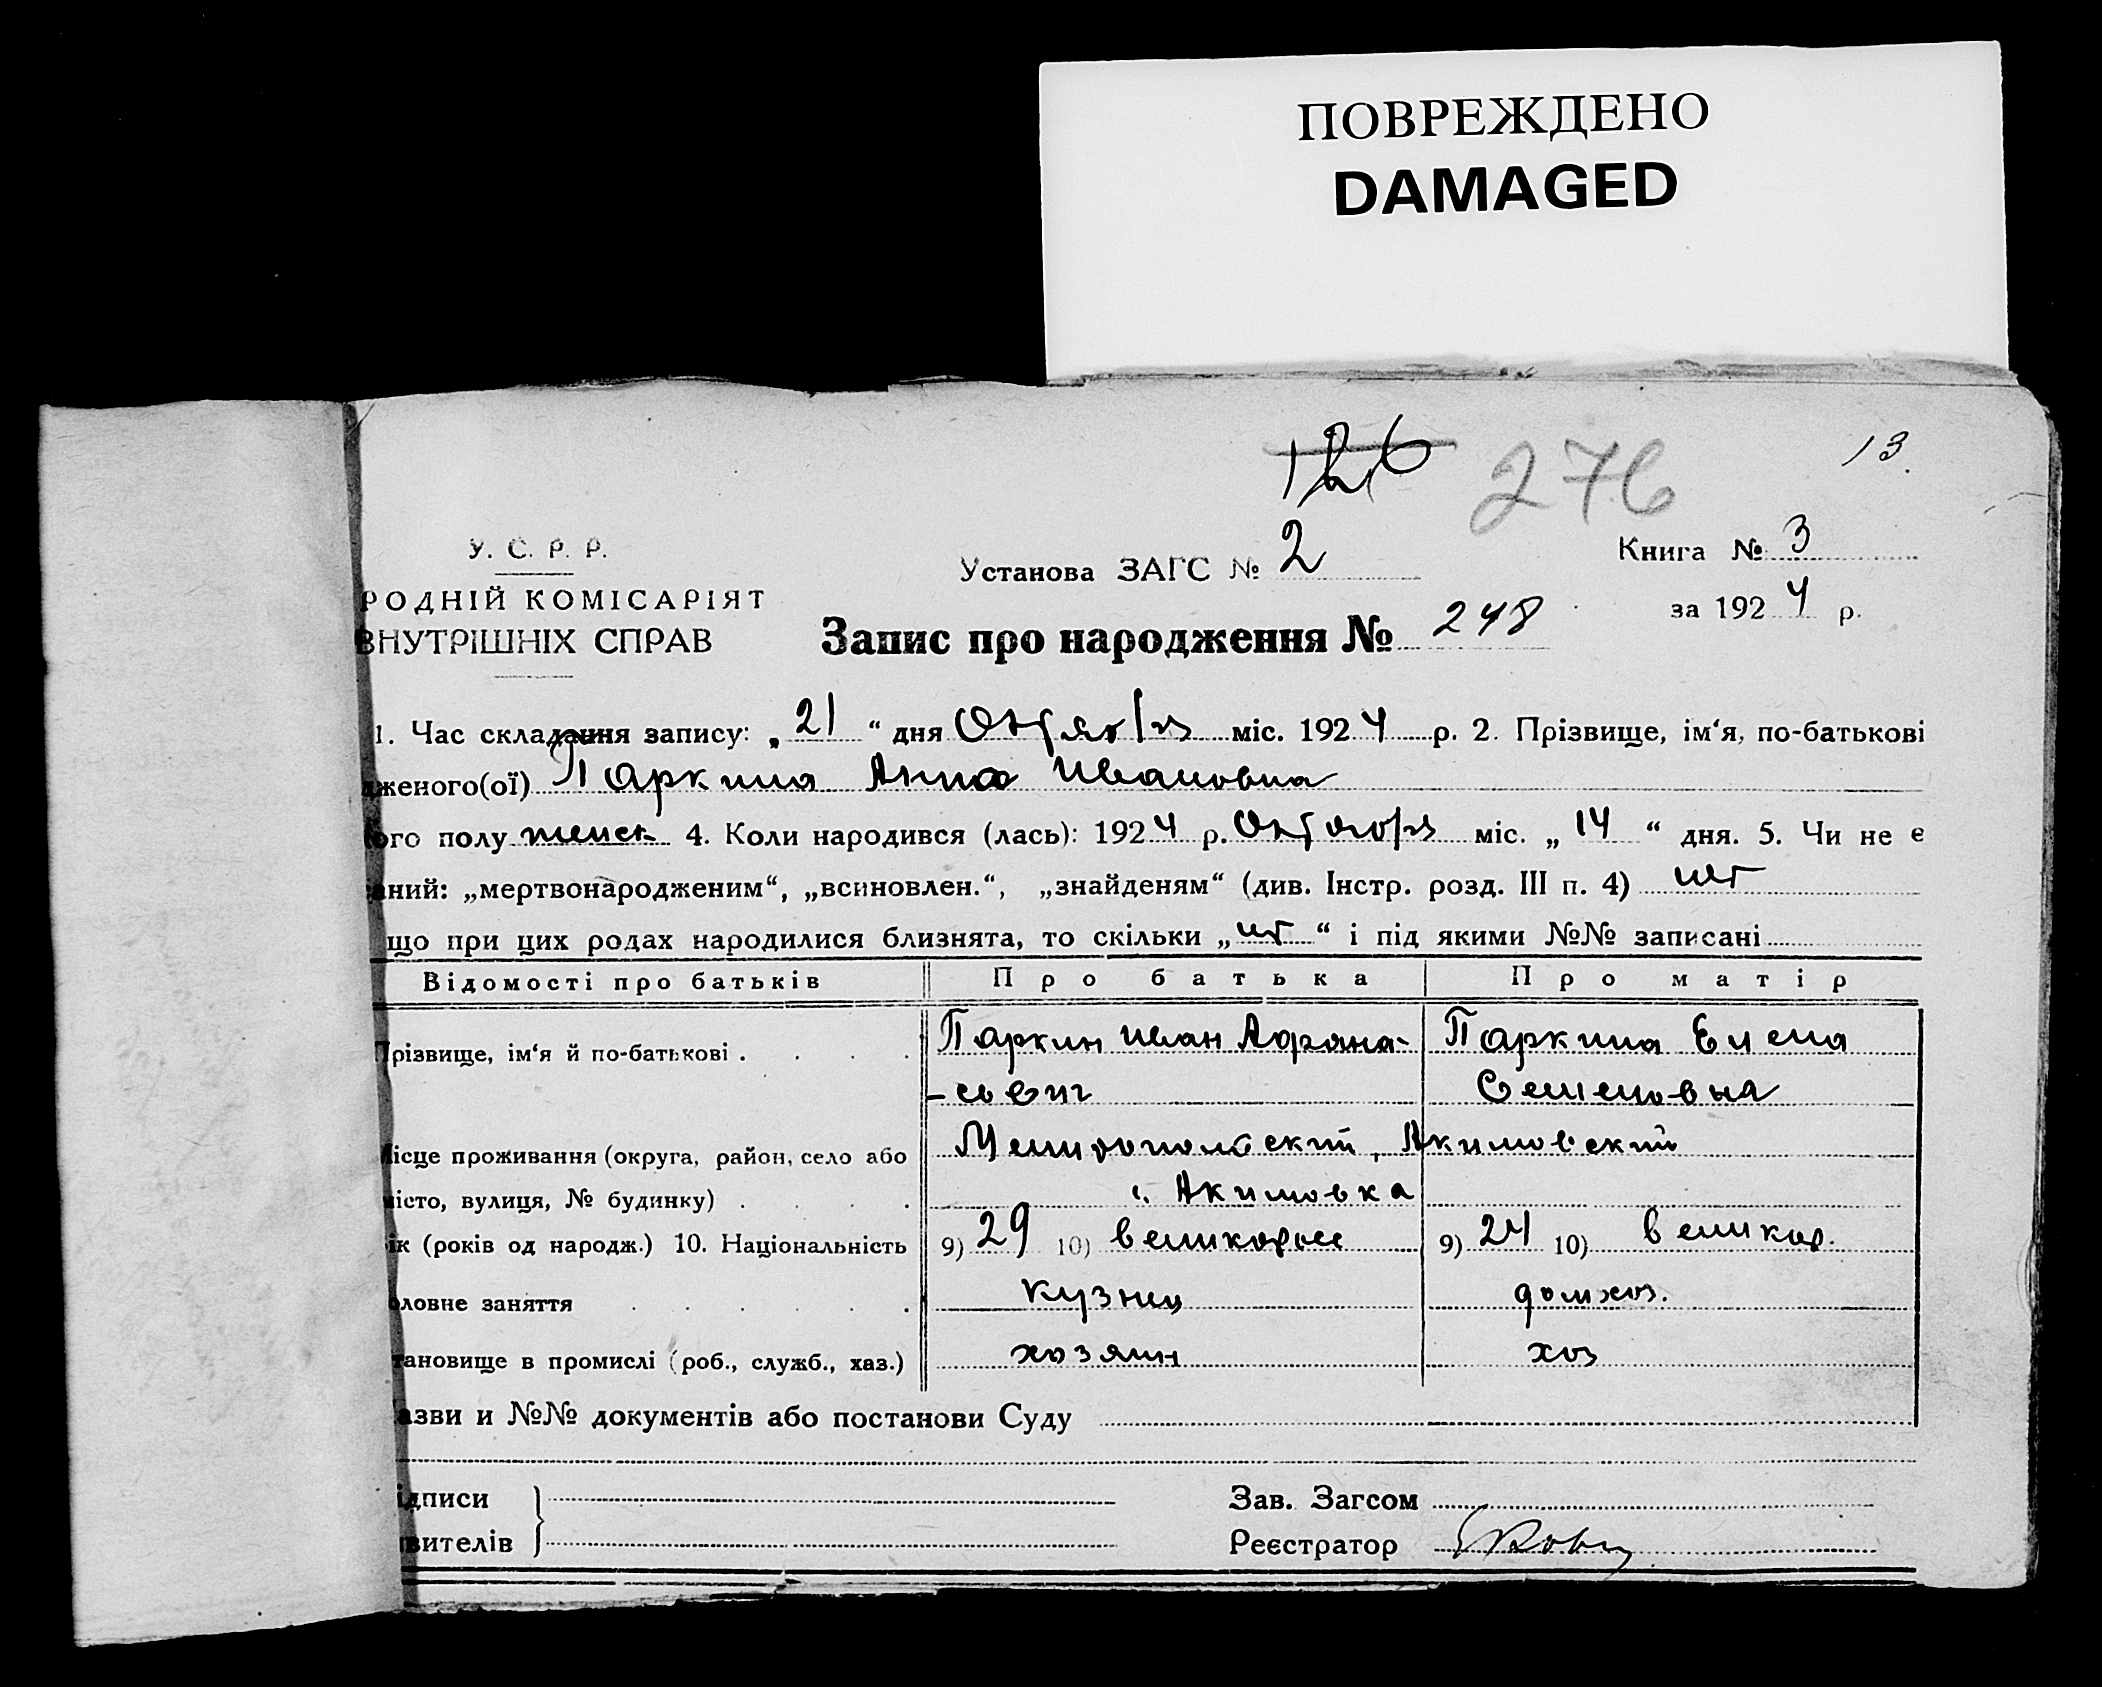 ПОВРЕЖДЕНО
DAMAGED
126 276 13.
У. С. Р. Р.
Установа ЗАГС № 2
Книга № 3
РОДНІЙ КОМІСАРІЯТ
за 1924 р.
ВНУТРІШНІХ СПРАВ
Запис про народження № 248
1. Час складання запису: „21“ дня Октября міс. 1924 р. 2. Прізвище, ім‘я, по-батькові
дженого(ої) Паркина Анна Ивановна
ого полу женск 4. Коли народився (лась): 1924 р. Октября міс. „14“ дня. 5. Чи не є
аний: „мертвонародженим“, „всиновлен.“, „знайденям“ (див. Інстр. розд. III п. 4) нет
що при цих родах народилися близнята, то скільки „нет“ і під якими №№ записані
Відомості про батьків Про батька Про матір
Прізвище, ім‘я й по-батькові . . . . Паркин Иван Афана- Паркина Елена
-сьевич Семеновна
Місце проживання (округа, район, село або Мелитопольский, Акимовский
місто, вулиця, № будинку) . . . . с. Акимовка
ік (років од народж.) 10. Національність 9) 29 10) великоросс 9) 24 10) великор.
оловне заняття . . . . . . кузнец домхоз.
тановище в промислі (роб., служб., хаз.) хозяин хоз
азви и №№ документів або постанови Суду
ідписи
Зав. Загсом
вителів
Реєстратор